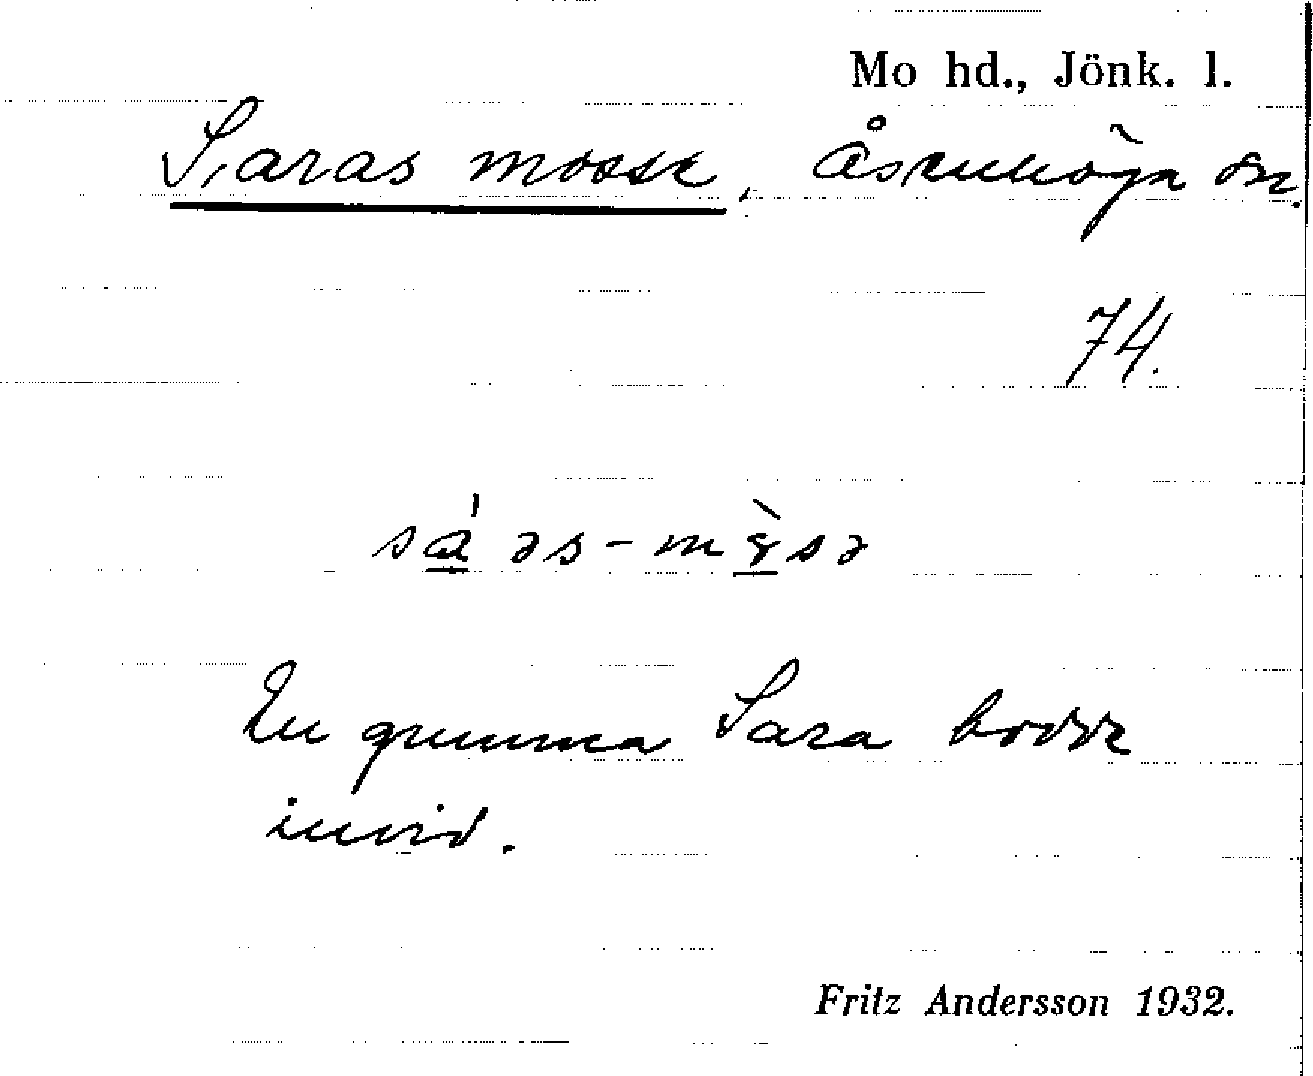 Mo hd., Jönk. l.
Saras mosse, Åsenhöga sn.
74.
sá əs-mɣ̀sə
En gumma Sara bodde
invid.
Fritz Andersson 1932.